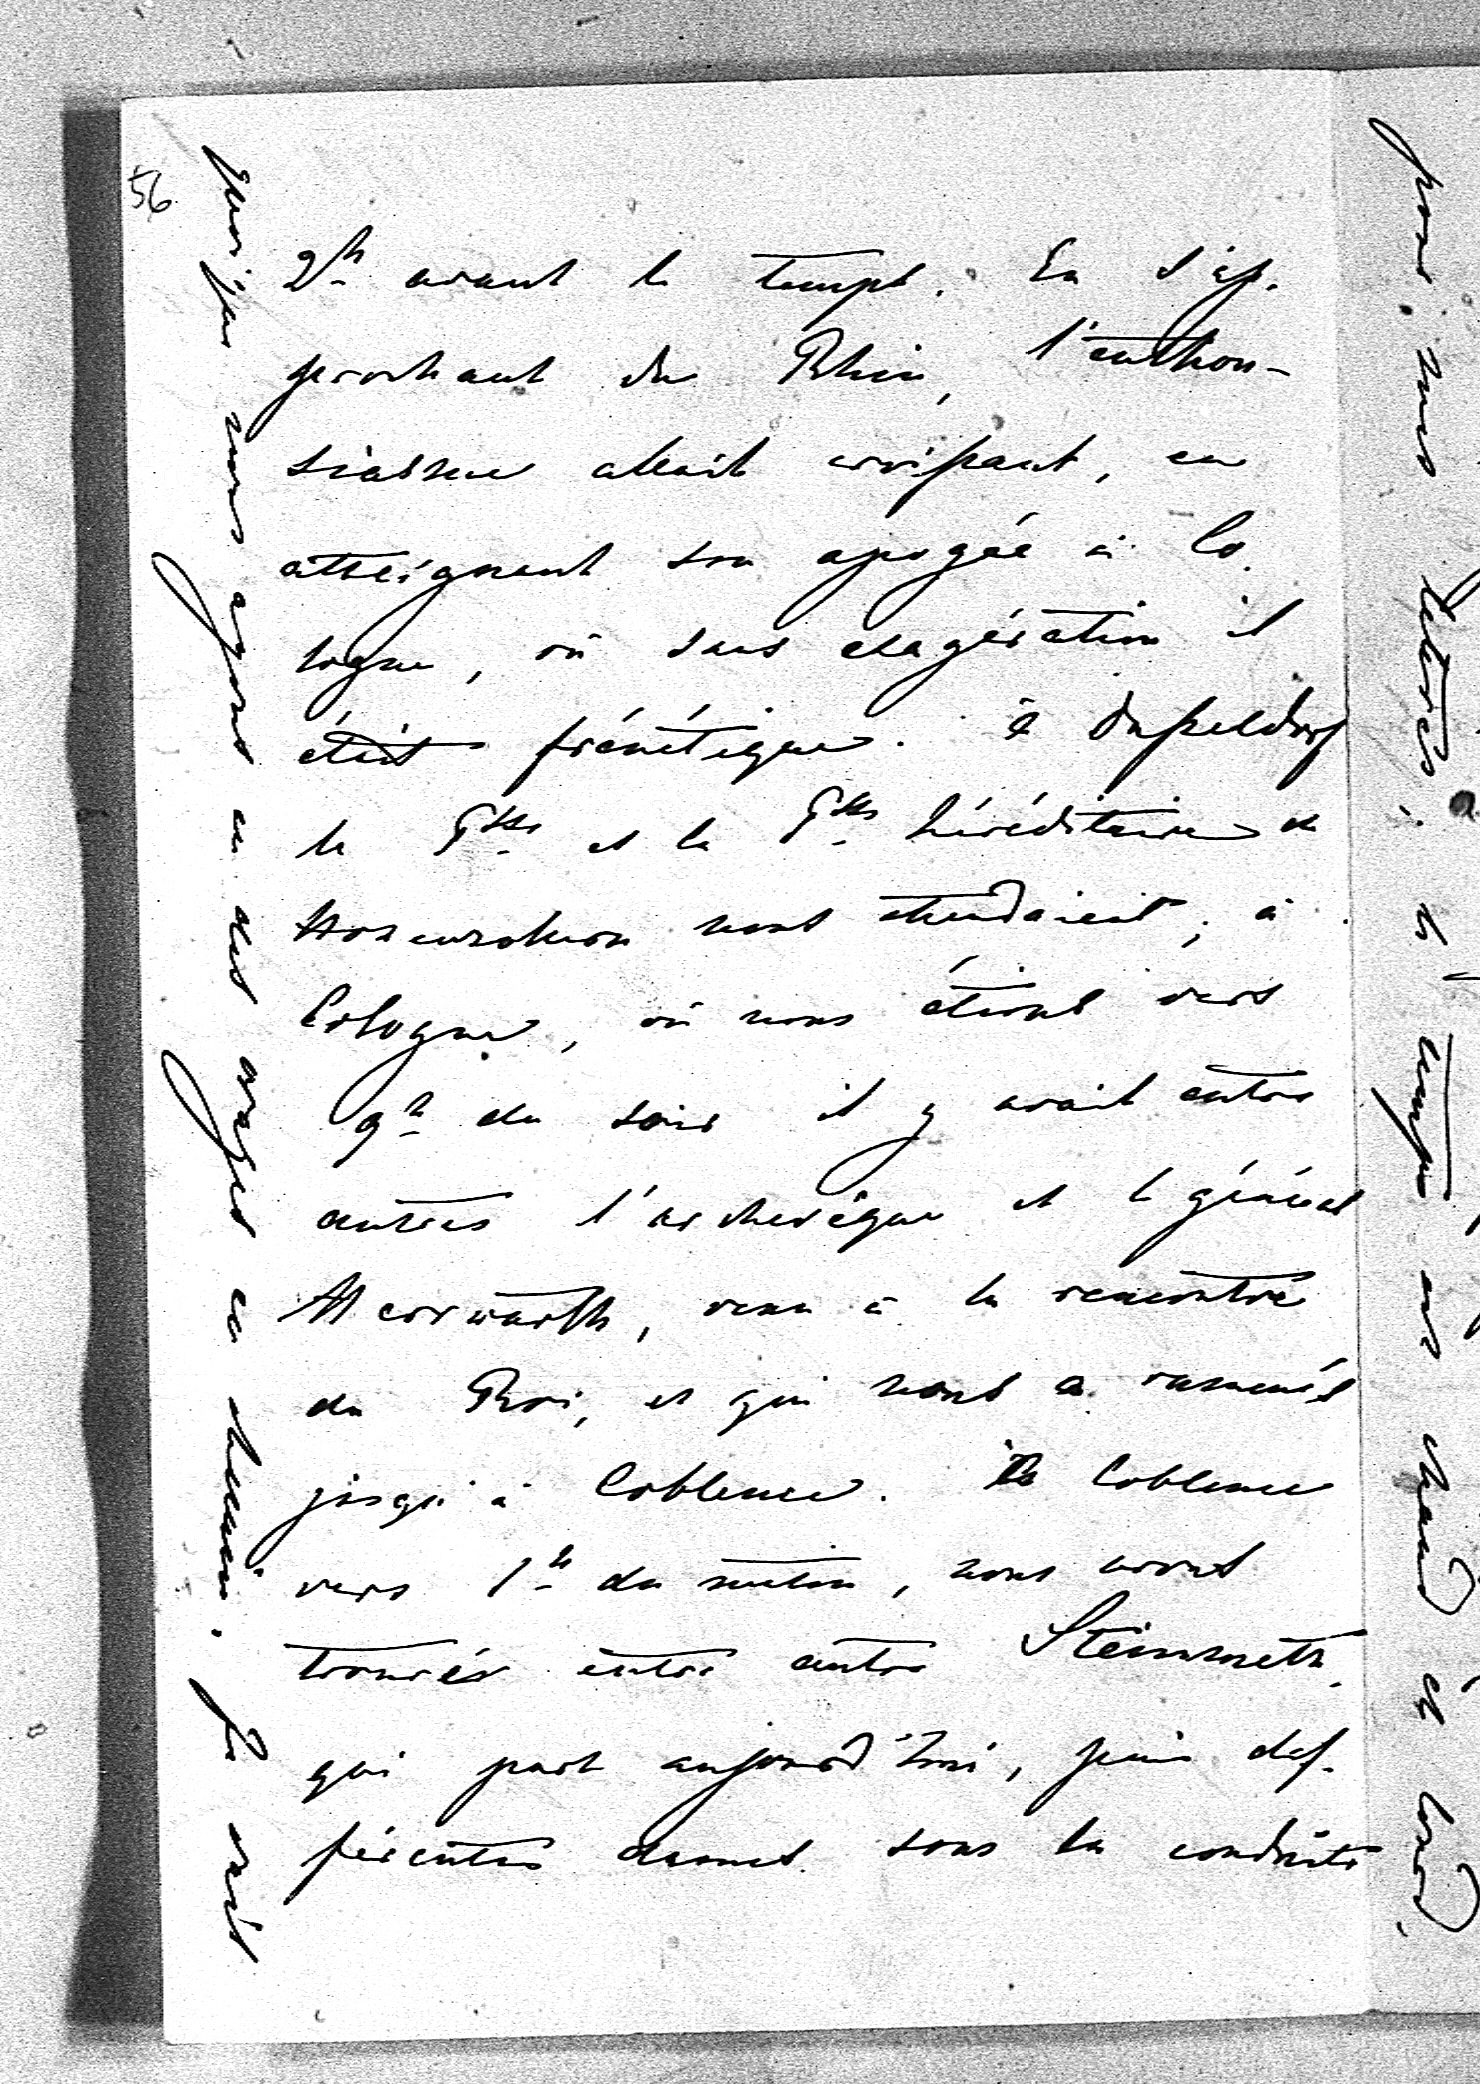 56
2h avant le temps. En s'ap-
prochant du Rhin, l'enthou-
siasme allait croissant, en
atteignant son apogée à Co
logne, où sans exagération il
était frénétique. à Dusseldorf
le Pce et la Psse héréditaire de
Hohenzollern nous attendaient; à
Cologne, où nous étions vers
9h du soir il y avait entre
autres l'archevêque et le général
Herrwarth, venu à la rencontre
du Roi, et qui nous a ramenés
jusqu'à Coblence. à Coblence
vers 1h du matin, nous avons
trouvés entre autre Steinmetz
qui part aujourd'hui, puis dif-
férentes dames sous la conduite
quoique nous ayons eu des orages en chemin. Je suis
pour mes lettres; le temps est chaud et lourd,